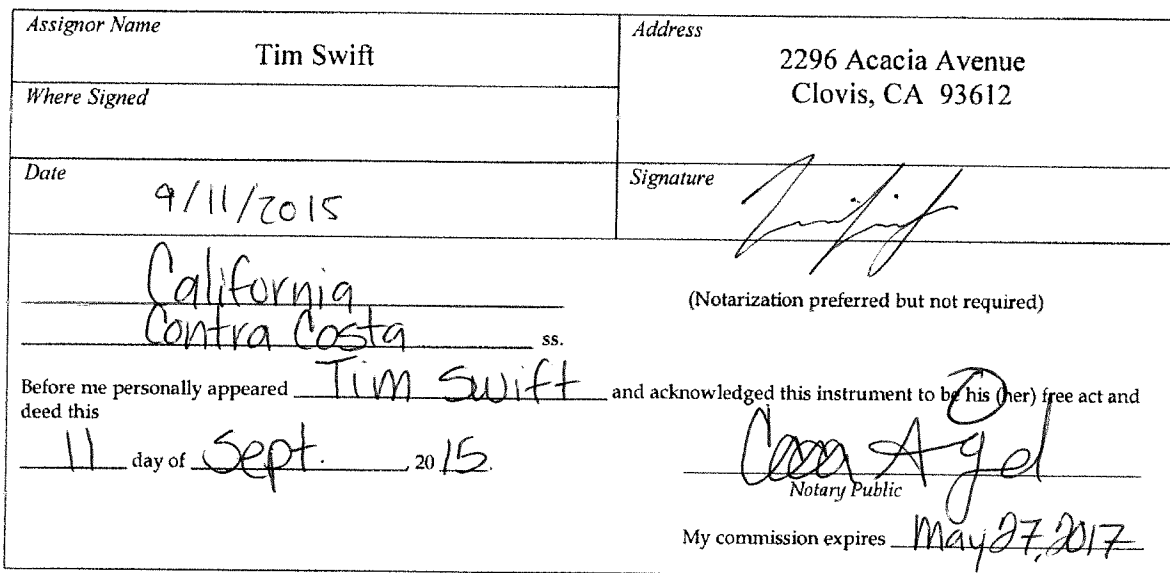 Assignor Name
Tim Swift
Address
2296 Acacia Avenue
Clovis, CA 93612
Where Signed
Date
9/11/2015
Signature
California
Contra Costa ss.
(Notarization preferred but not required)
Before me personally appeared Tim Swift and acknowledged this instrument to be his (her) free act and
deed this
11 day of Sept. , 2015.
Notary Public
My commission expires May 27, 2017